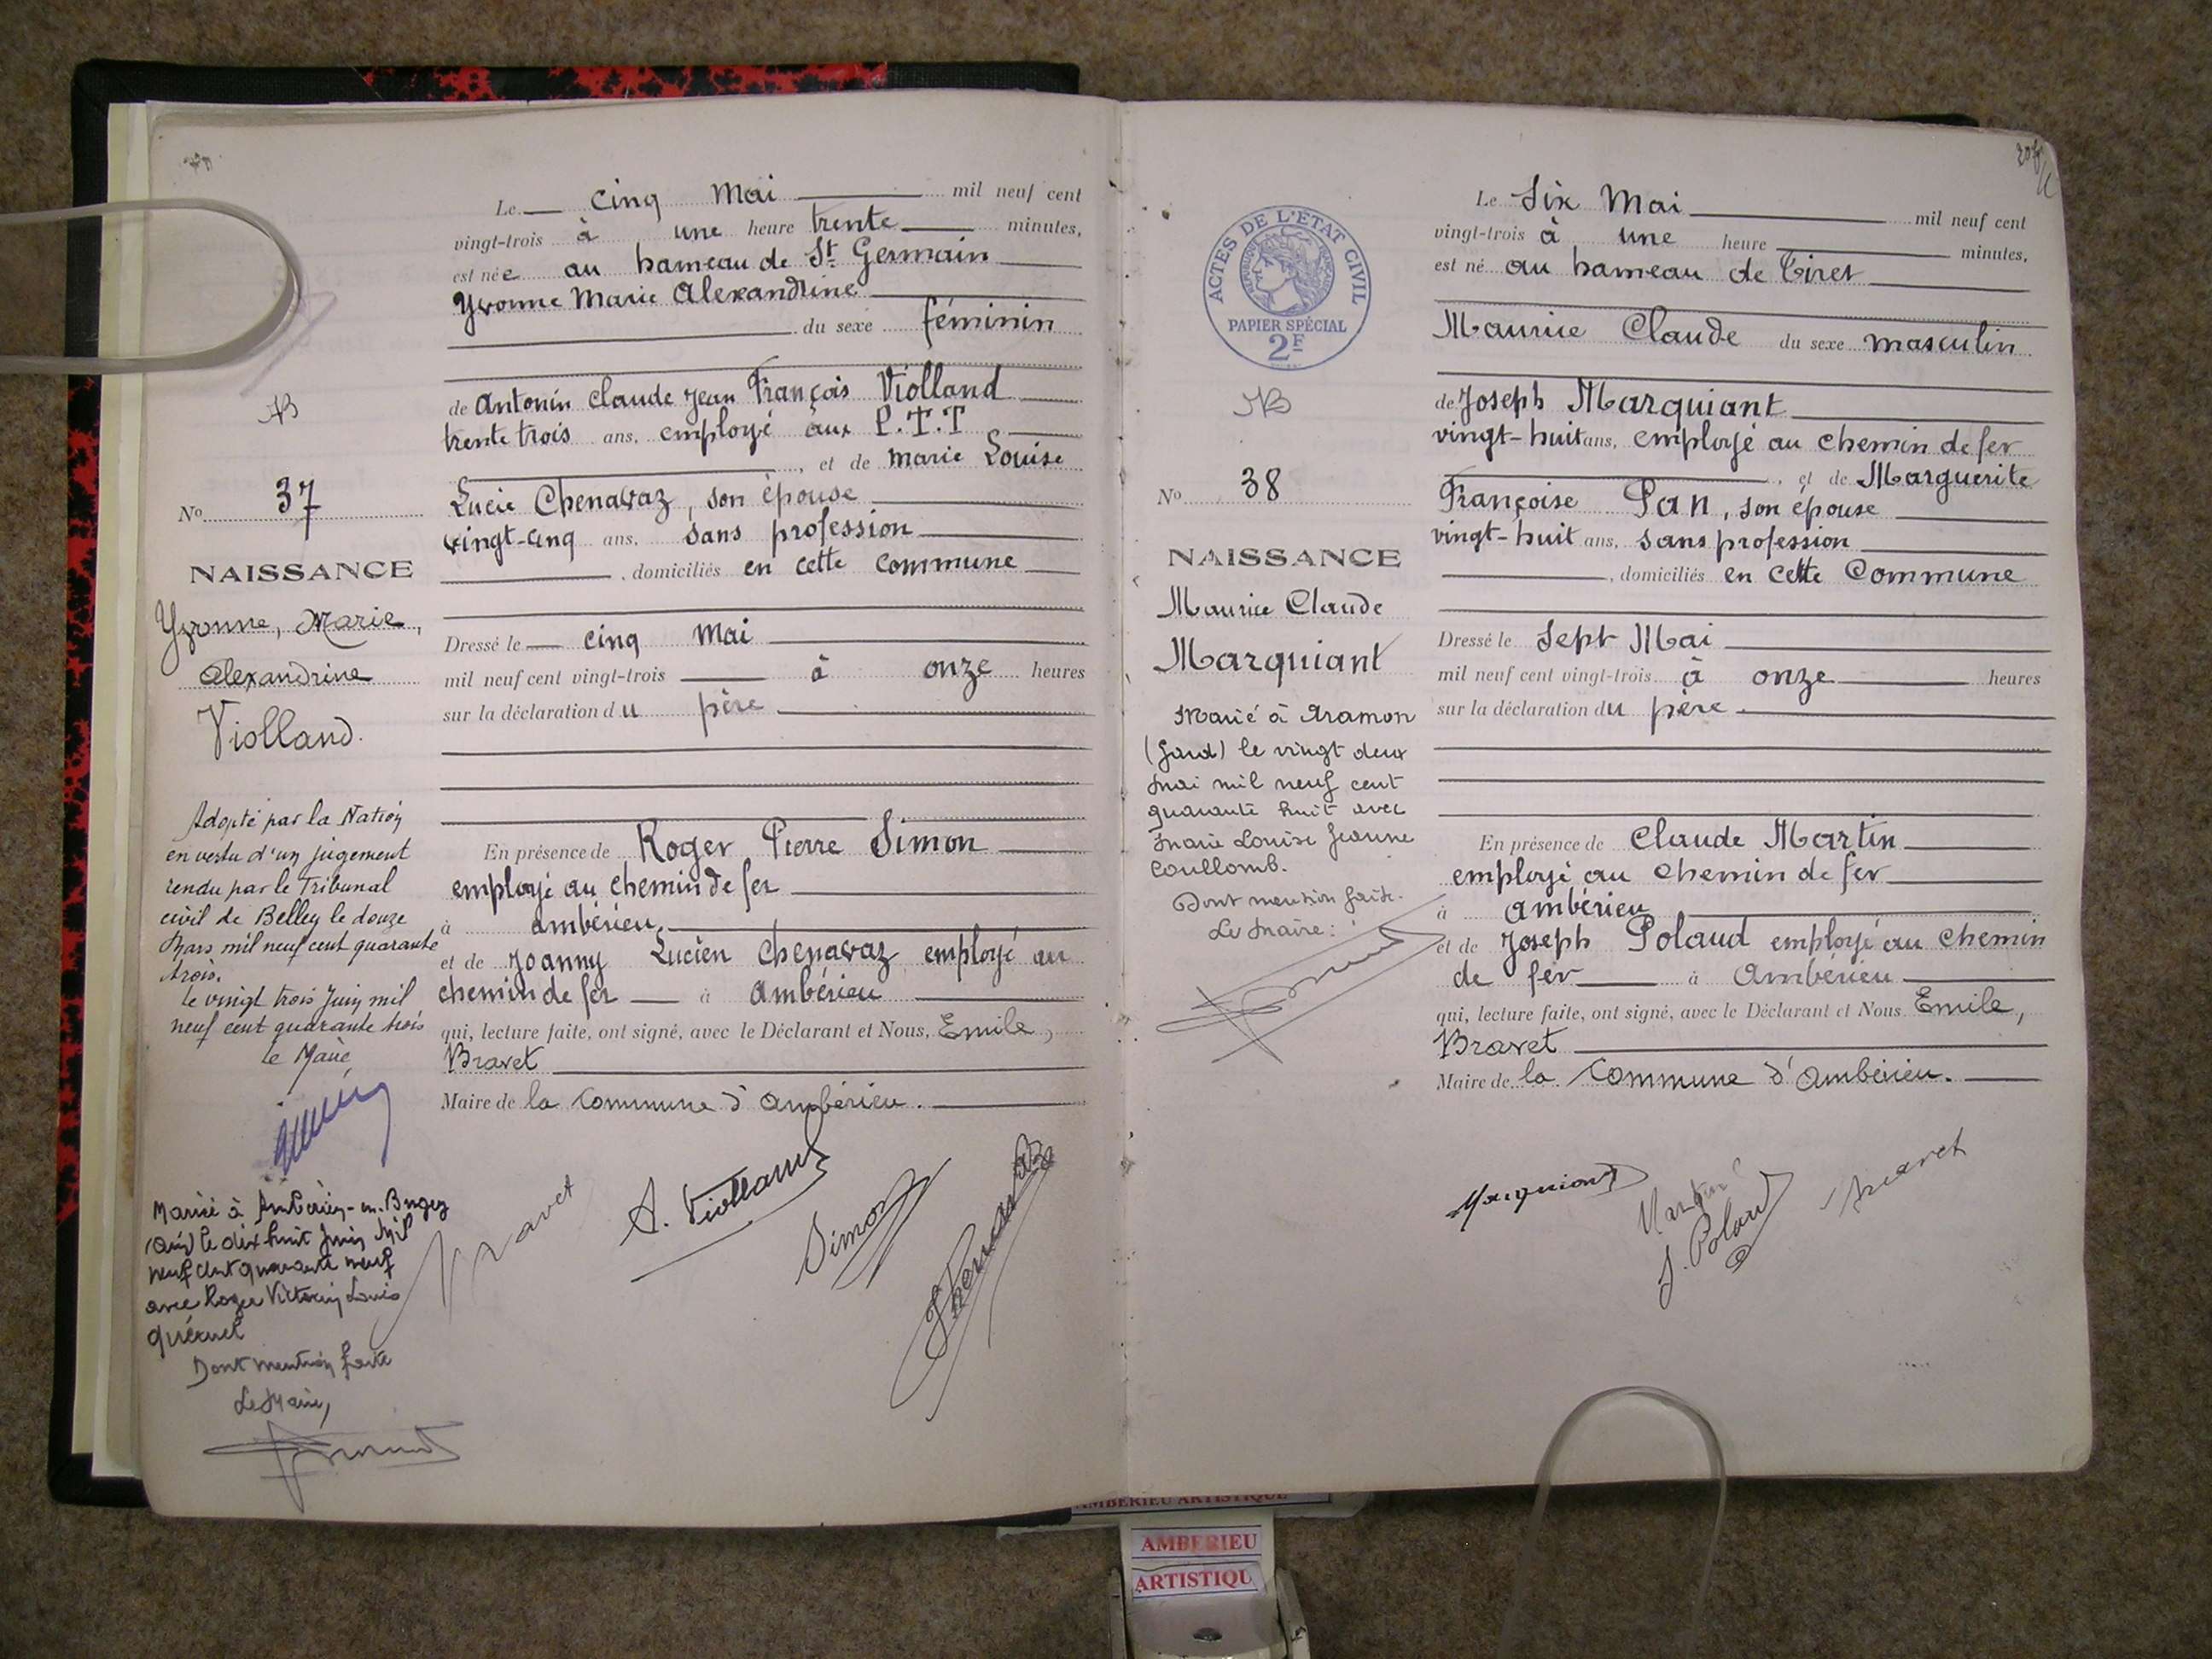 Le cinq Mai mil neuf cent
vingt-trois à une heure trente minutes,
est née au hameau de St Germain
Yvonne Marie Alexandrine
du sexe féminin
de Antonin Claude Jean François Violland
trente trois ans, employé aux P.T.T
, et de Marie Louise
Lucie Chenavaz, son épouse
vingt-cinq ans, sans profession
, domiciliés en cette Commune
Dressé le cinq Mai
mil neuf cent vingt-trois à onze heures
sur la déclaration du père
En présence de Roger Pierre Simon
employé au chemin de fer
à Ambérieu
et de Joanny Lucien Chenavaz employé au
chemin de fer à Ambérieu
qui, lecture faite, ont signé, avec le Déclarant et Nous, Emile,
Bravet
Maire de la Commune d'Ambérieu.
No 37
NAISSANCE
Yvonne, Marie,
Alexandrine
Violland.
Adopté par la Nation
en vertu d'un jugement
rendu par le Tribunal
civil de Belley le douze
Mars mil neuf cent quarante
trois.
Le vingt trois Juin mil
neuf cent quarante trois
Le Maire
Marié à Ambérieu-en-Bugey
(Ain) le dix huit Juin Mil
neuf cent quarante neuf
avec Roger Victorin Louis
Quéruel
Dont mention faite
Le Maire,
Bravet
A. Violland
Simon
Chenavaz
ACTES DE L'ÉTAT CIVIL
PAPIER SPÉCIAL
2F
Le Six Mai mil neuf cent
vingt-trois à une heure minutes,
est né au hameau de Tiret
Maurice Claude du sexe masculin
de Joseph Marquiant
vingt-huit ans, employé au chemin de fer
, et de Marguerite
Françoise Pan, son épouse
vingt-huit ans, sans profession
, domiciliés en cette Commune
Dressé le Sept Mai
mil neuf cent vingt-trois à onze heures
sur la déclaration du père
En présence de Claude Martin
employé au chemin de fer
à Ambérieu
et de Joseph Polaud employé au chemin
de fer à Ambérieu
qui, lecture faite, ont signé, avec le Déclarant et Nous Emile,
Bravet
Maire de la Commune d'Ambérieu.
No 38
NAISSANCE
Maurice Claude
Marquiant
Marié à Aramon
(Gard) le vingt deux
Mai mil neuf cent
quarante huit avec
Marie Louise Jeanne
Coullomb.
Dont mention faite.
Le Maire:
Marquiant
Martin
J. Polaud
Bravet
AMBERIEU ARTISTIQUE
AMBERIEU
ARTISTIQU